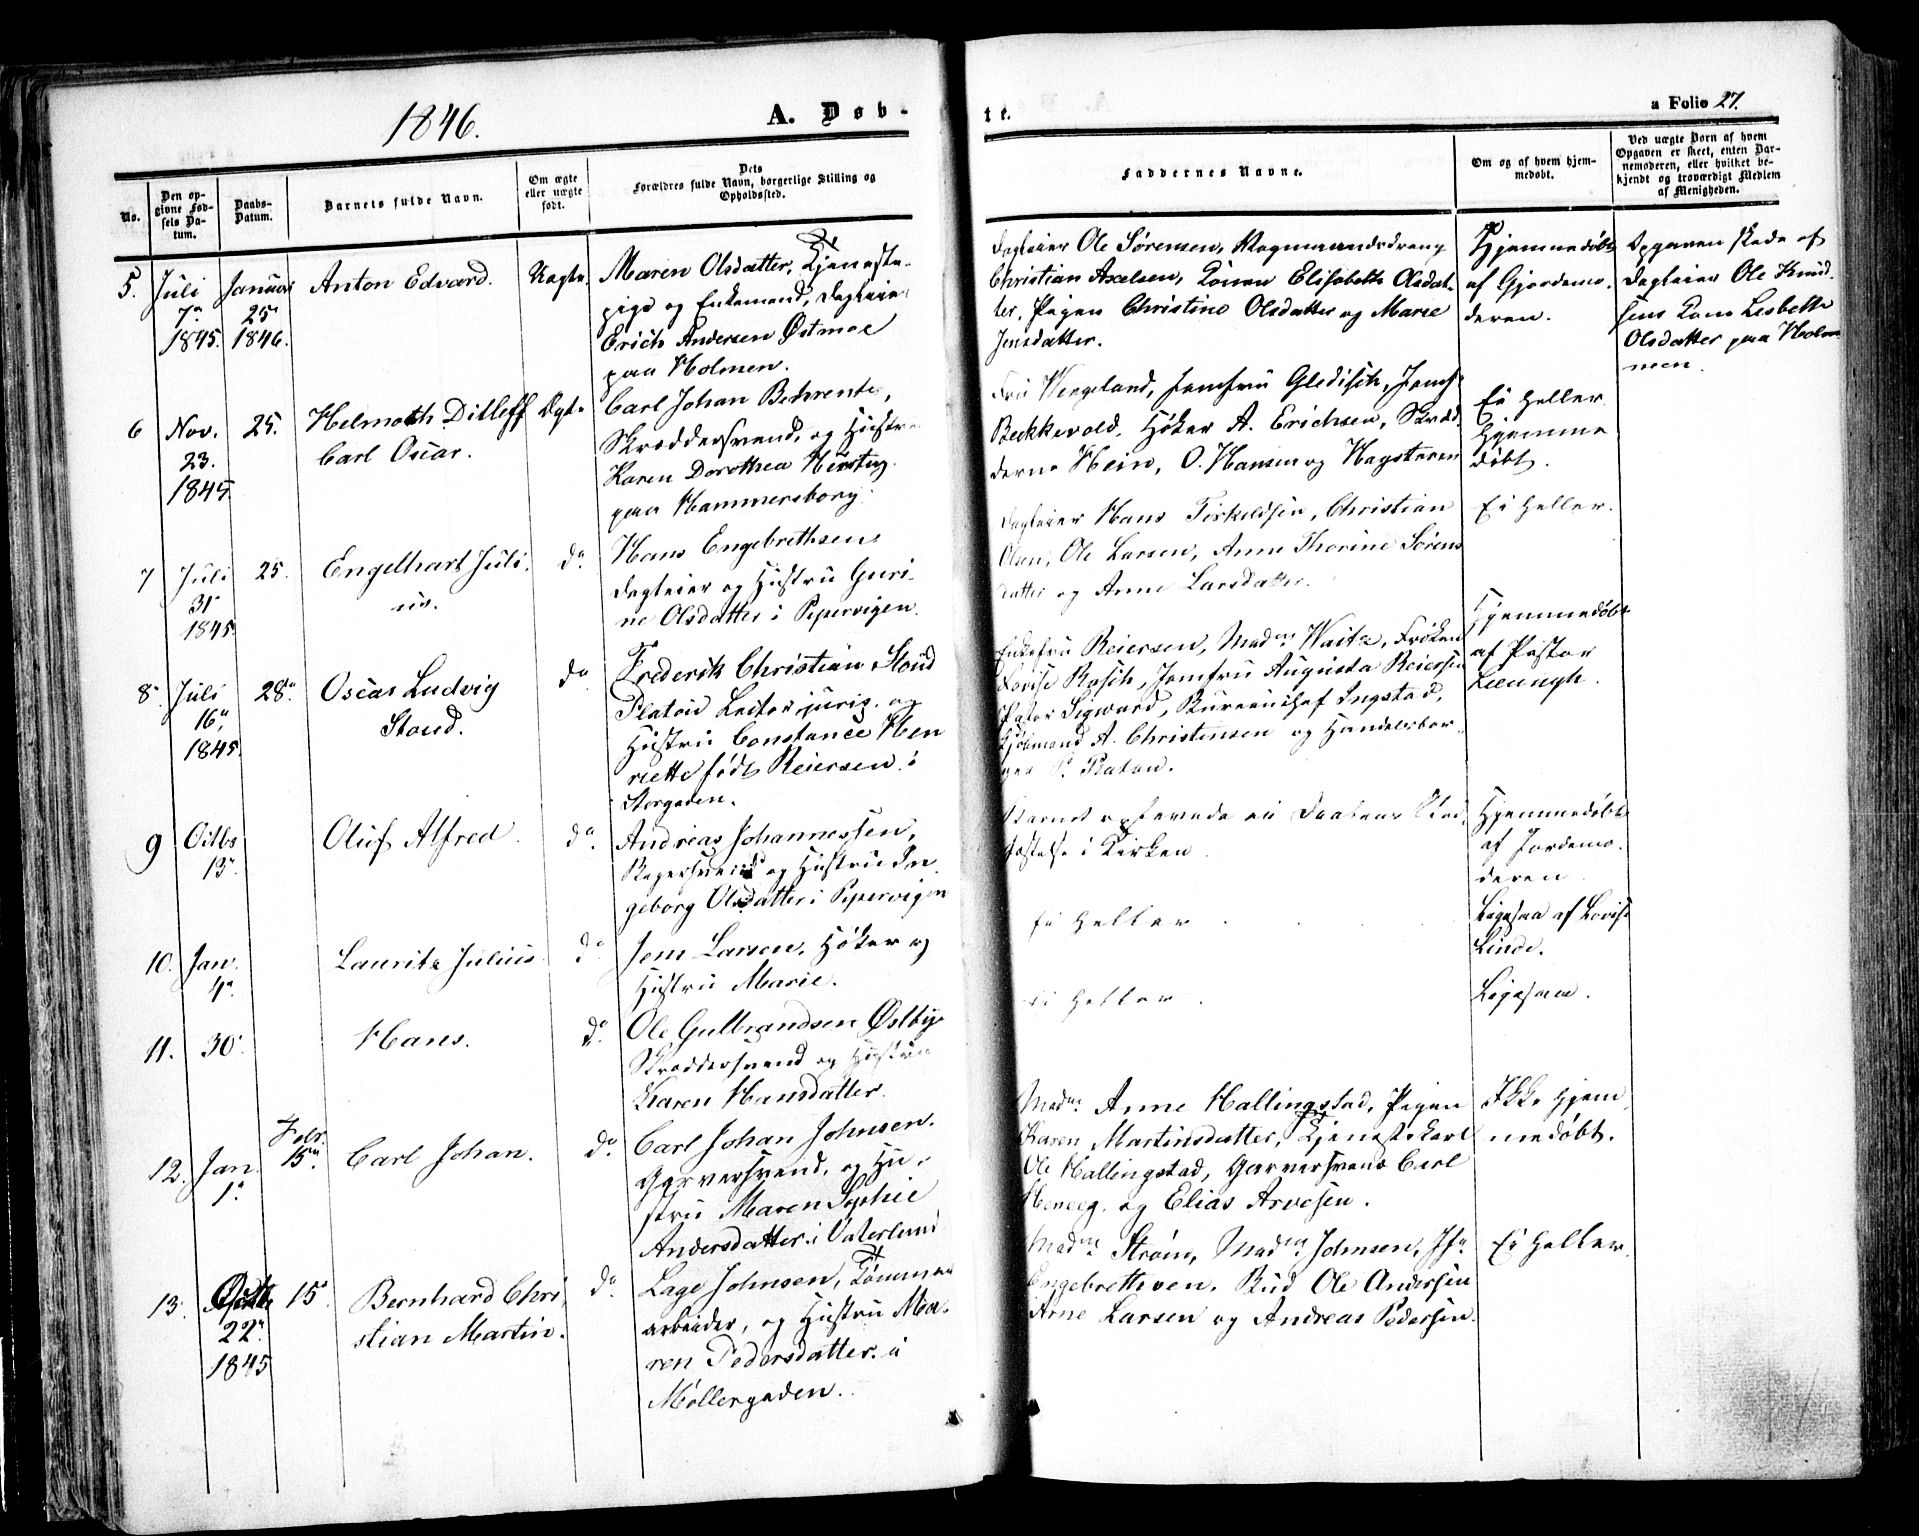 1846.
A. Døb-
No.
Den opgivne Fødsels Datum.
Daabs-Datum.
Barnets fulde Navn.
Om ægte eller uægte født.
Dets Forældres fulde Navn, borgerlige Stilling og Opholdssted.
5. Juli 7de 1845. Januar 25de 1846. Anton Edvard. Uægte.
Maren Olsdatter, Tjeneste-
pige og Enkemand, Dagleier
Erich Andersen Østmoe
paa Holmen.
6 Nov. 23. 1845 25. Helmoth Ditleff Carl Oscar. Ægte
Carl Johan Behrents,
Skræddersvend, og Hustru
Karen Dorothea
paa Hammersborg.
7 Juli 31 1845 25. Engelhart Julius. do
Hans Engebrethsen
Dagleier og Hustru Guri-
ne Olsdatter i Pipervigen.
8 Juli 16 1845. 28 Oscar Ludvig Stoud. do
Frederik Christian Stoud
Platou Lector juris. og
Hustru Constance Hen
riette født Reiersen i
Storgaden.
9 Octbr 13 Oluf Alfred. do
Andreas Johannessen,
Bagersvend og Hustru In
geborg Olsdatter i Pipervigen
10. Jan. 4 Lauritz Julius do
Jens Larsen, Høker og
Hustru Marie.
11. 30 Hans. do
Ole Gulbrandsen Østbye
Skræddersvend og Hustru
Karen Hansdatter.
12. Jan. 1 Febr. 15 Carl Johan. do
Carl Johan Johnsen.
Garversvend, og Hu-
stru Maren Sophie
Andersdatter i Vaterland
13. 22 1845 15 Bernhard Christian Martin. do
Lage Johnsen, Tømmer
arbeider, og Hustru Ma-
ren Pedersdatter i
Møllergaden.
te.
a Folio 27.
Faddernes Navne.
Om og af hvem hjemmedøbt.
Ved uægte Børn af hvem Opgaven er skeet, enten Barnemoderen, eller hvilket bekjendt og troværdigt Medlem af Menigheden.
Dagleier Ole Sørensen,
Christian Axelsen, Konen Elisabeth Olsdat-
ter, Pigen Christine Olsdatter og Marie
Jensdatter.
Hjemmedøbt
af Gjordemo-
deren.
Opgaven skede af
Dagleier Ole Knud
sens Kone Lisbeth
Olsdatter paa Holm
men.
Fru Wergeland, Jomfru Gleditsch, Jomf.
Bekkevold, Høker A. Erichsen, Skræd
derne Hein, O. Hansen og Hagsteen
Ei Heller
Hjemme
døbt.
Dagleier Hans Terkeldsen, Christian
Olsen, Ole Larsen, Anne Thorine Sørens
datter og Anne Larsdatter.
Ei Heller.
Enkefru Reiersen, Madm Waitz, Frøken
Lovise Rosch, Jomfru Augusta Reiersen
Pastor Sigward, Bureauchef Ingstad,
Kjøbmand A. Christensen og Handelsbor-
ger P. Platou.
Hjemmedøbt
af Pastor
Barnet døde en Daabens Stad
fæstelse i Kirken
Hjemmedøbt
af Jordemo-
deren
Ei Heller
Ligesaa af Lovise
Linde.
Ei Heller
Ligesaa.
Madm Anne Hallingstad, Pigen
Karen Martinsdatter, Tjenestekarl
Ole Hallingstad, Garversvend Carl
og Elias Arvesen.
Ikke Hjem
medøbt.
Madm Strøm, Madm Johnsen, Jfr
Engebrethsen. Bud Ole Andersen
Arne Larsen og Andreas Pedersen.
Ei Heller